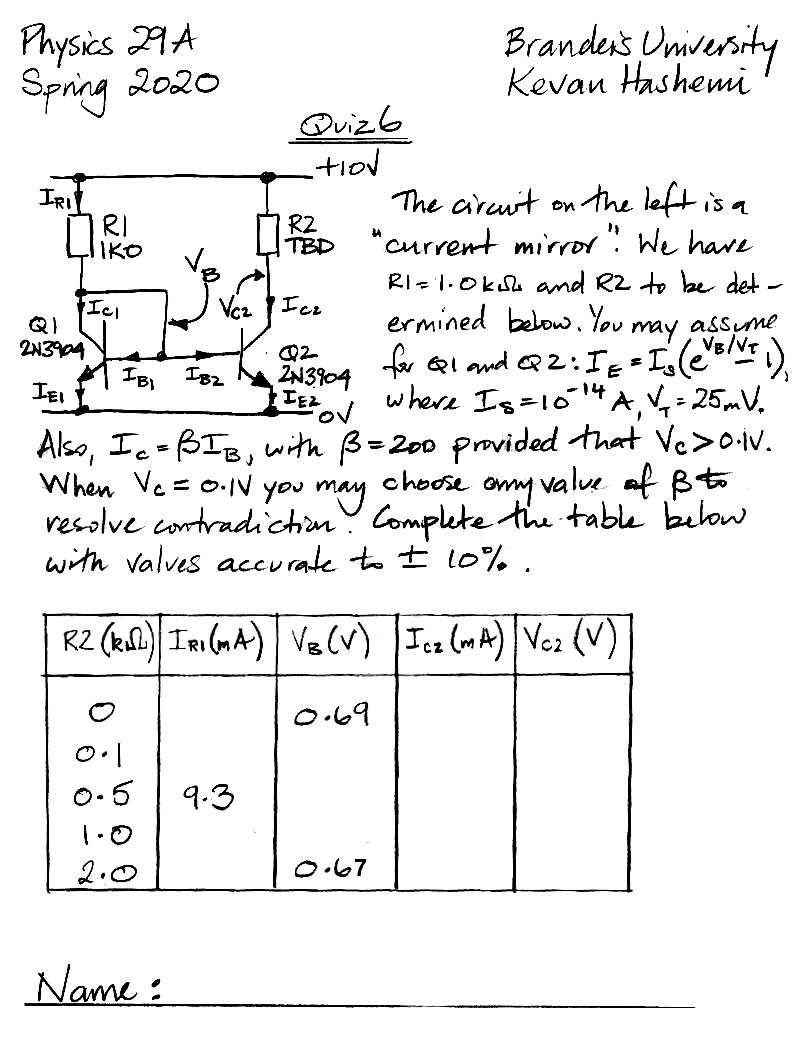 Physics 29A
Brandeis University
Spring 2020
Kevan Hashemi
Quiz 6
+10V
I_R1
R1
1K0
R2
TBD
V_B
I_C1
V_C2
I_C2
Q1
2N3904
Q2
2N3904
I_B1
I_B2
I_E1
I_E2
0V
The circuit on the left is a
"current mirror". We have
R1 = 1.0 kΩ and R2 to be det-
ermined below. You may assume
for Q1 and Q2: I_E = I_S (e^(V_B/V_T) – 1),
where I_S = 10^-14 A, V_T = 25mV.
Also, I_C = βI_B, with β = 200 provided that V_C > 0.1V.
When V_C = 0.1V you may choose any value of β to
resolve contradiction. Complete the table below
with values accurate to ± 10%.
R2 (kΩ) I_R1 (mA) V_B (V) I_C2 (mA) V_C2 (V)
0 0.69
0.1
0.5 9.3
1.0
2.0 0.67
Name: